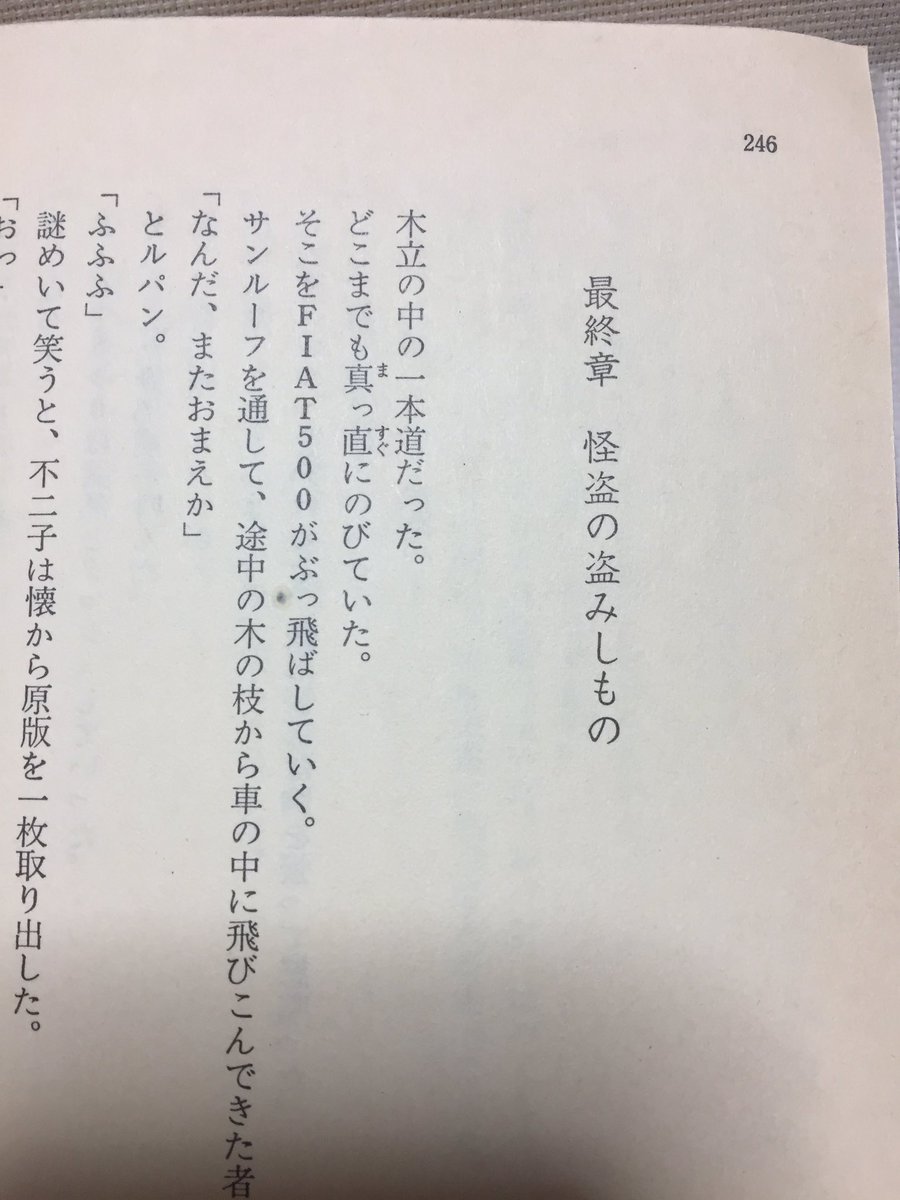 246
最終章　怪盗の盗みしもの
木立の中の一本道だった。
どこまでも真っ直にのびていた。
そこをFIAT500がぶっ飛ばしていく。
サンルーフを通して、途中の木の枝から車の中に飛びこんできた者
「なんだ、またおまえか」
とルパン。
「ふふふ」
謎めいて笑うと、不二子は懐から原版を一枚取り出した。
「おっ